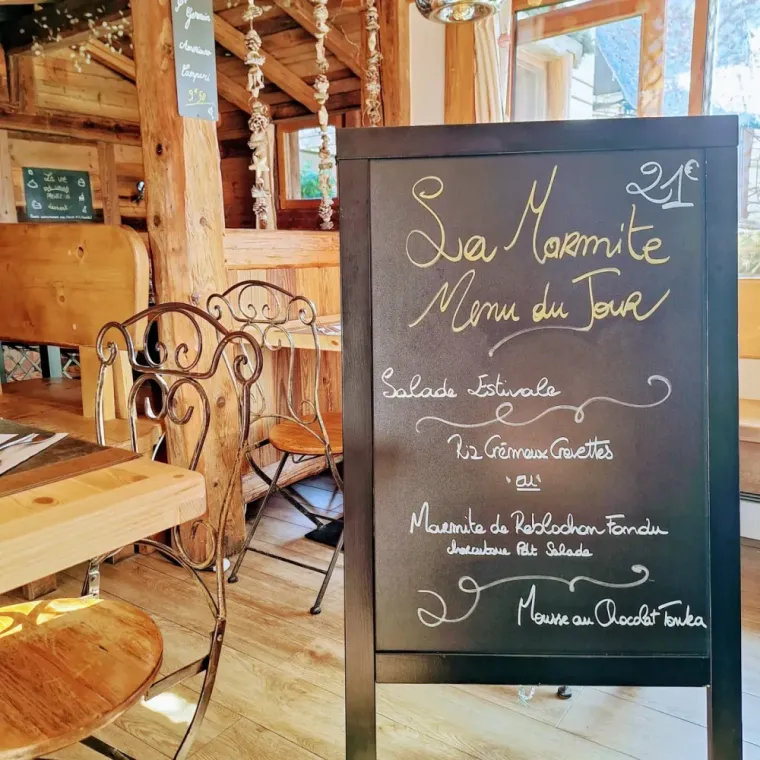 Americano
Campari
9€50
La vie
21€
La Marmite
Menu du Jour
Salade Estivale
Riz Crémeux Crevettes
ou
Marmite de Reblochon Fondu
charcuterie Ptit Salade
Mousse au Chocolat Tonka